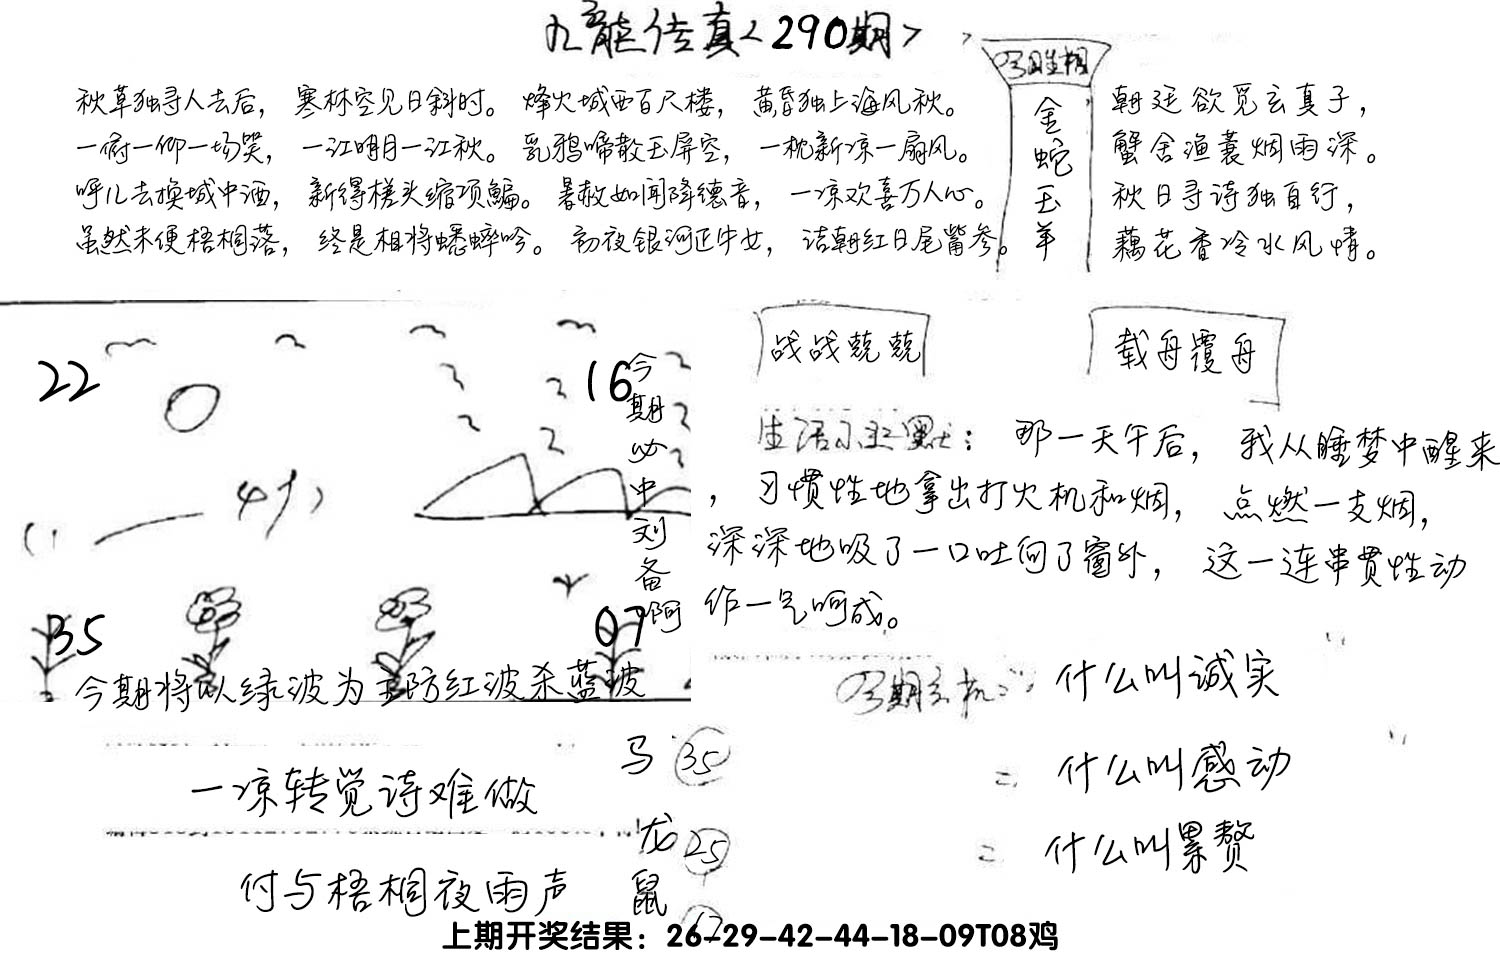 九龍传真<290期>
秋草独寻人去后，寒林空见日斜时。烽火城西百尺楼，黄昏独上海风秋。
一俯一仰一场笑，一江明月一江秋。乳鸦啼散玉屏空，一枕新凉一扇风。
呼儿去换城中酒，新得槎头缩项鳊。暑赦如闻降德音，一凉欢喜万人心。
虽然未便梧桐落，终是相将蟋蟀吟。初夜银河正牛女，诘朝红日尾觜参。
金蛇玉羊
朝廷欲觅玄真子，
蟹舍渔蓑烟雨深。
秋日寻诗独自行，
藕花香冷水风情。
22
16
35
07
今期必中刘备啊
今期将以绿波为主防红波杀蓝波
战战兢兢
载舟覆舟
生活小幽默：那一天午后，我从睡梦中醒来
，习惯性地拿出打火机和烟，点燃一支烟，
深深地吸了一口吐向了窗外，这一连串贯性动
作一气呵成。
什么叫诚实
= 什么叫感动
= 什么叫累赘
一凉转觉诗难做
付与梧桐夜雨声
马 35
龙 25
鼠
上期开奖结果：26-29-42-44-18-09T08鸡